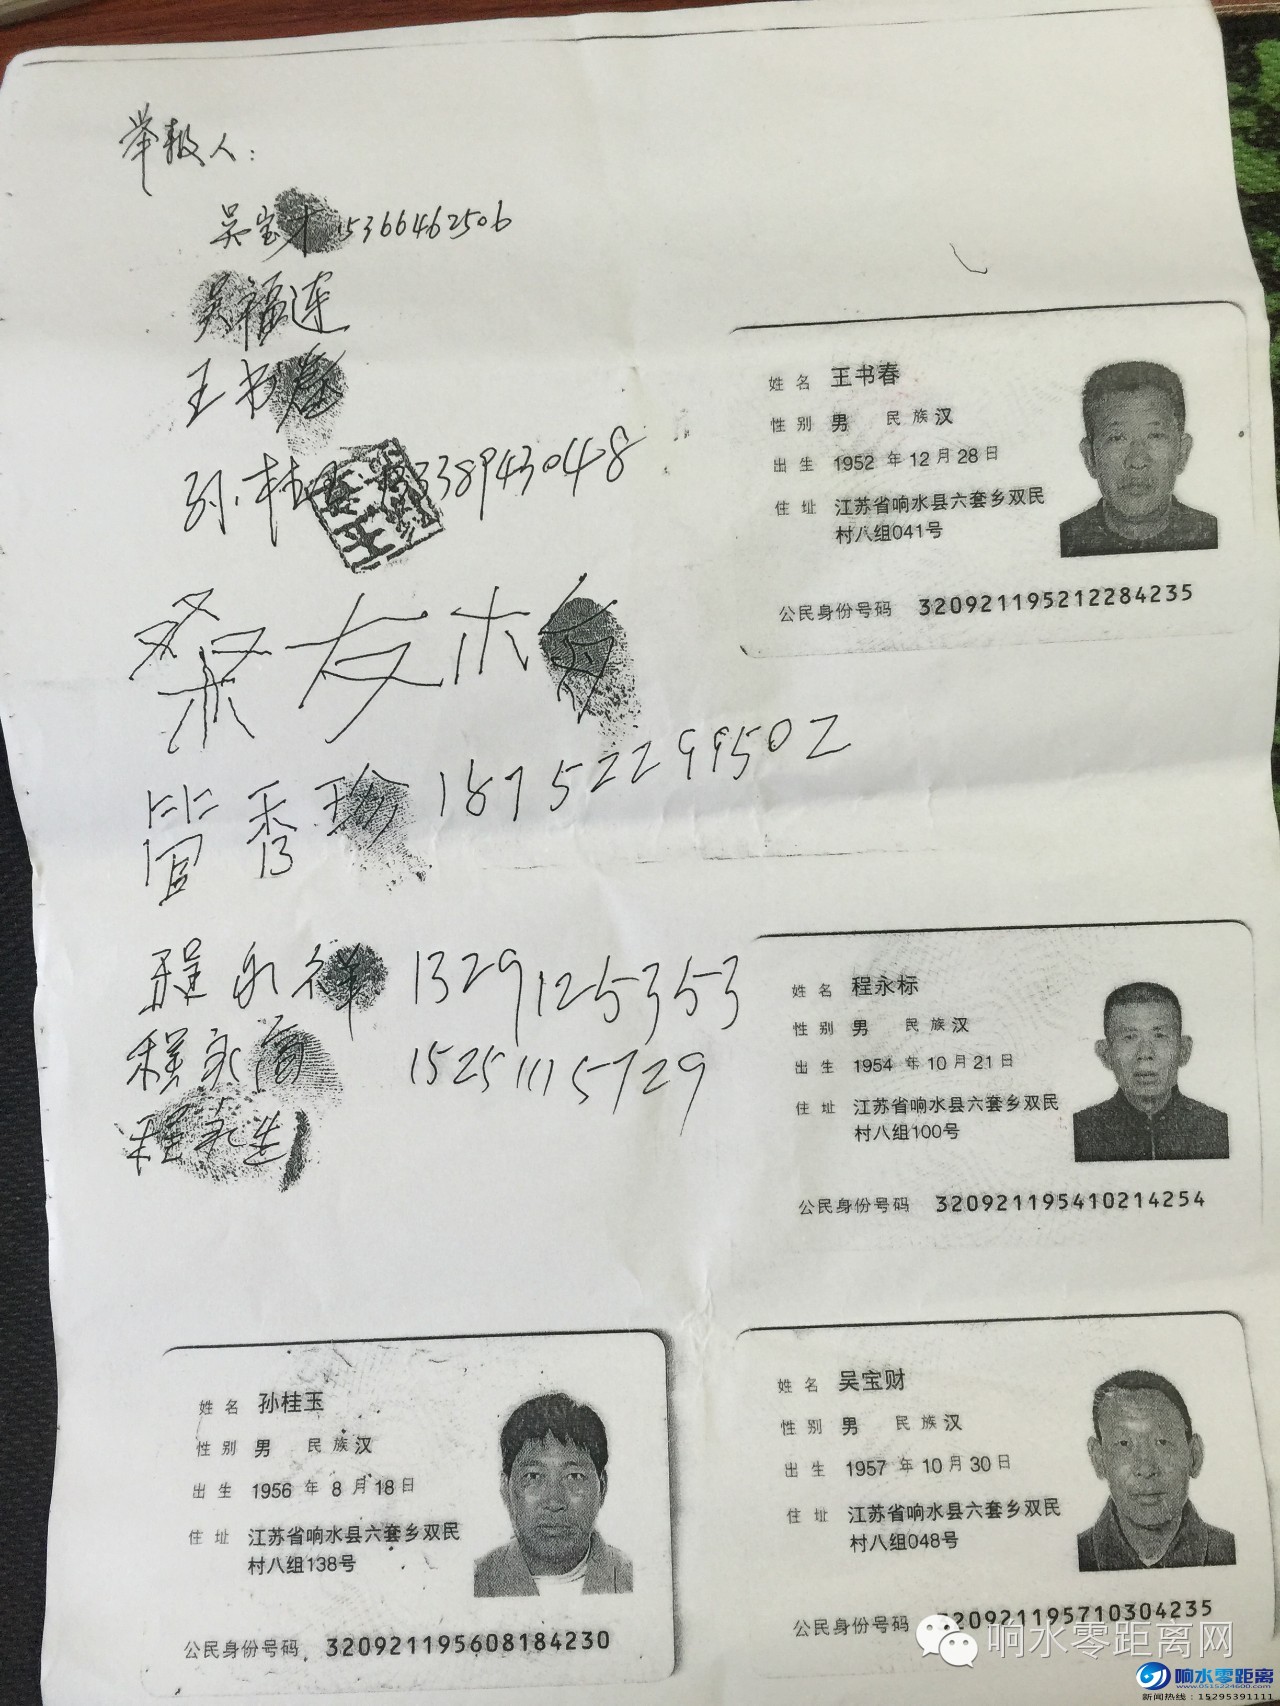 举报人:
吴宝才 15366462506
吴福连
王书春
孙桂玉 1338943048
桑友梅
管秀珍 18752299502
程永祥 13291125353
程永
15251115729
程永生
姓名 王书春
性别 男 民族 汉
出生 1952 年 12 月 28 日
住址 江苏省响水县六套乡双民
村八组041号
公民身份号码 320921195212284235
姓名 程永标
性别 男 民族 汉
出生 1954 年 10 月 21 日
住址 江苏省响水县六套乡双民
村八组100号
公民身份号码 320921195410214254
姓名 孙桂玉
性别 男 民族 汉
出生 1956 年 8 月 18 日
住址 江苏省响水县六套乡双民
村八组138号
公民身份号码 320921195608184230
姓名 吴宝财
性别 男 民族 汉
出生 1957 年 10 月 30 日
住址 江苏省响水县六套乡双民
村八组048号
公民身份号码 320921195710304235
响水零距离网
响水零距离
www.0515224600.com
新闻热线:15295391111